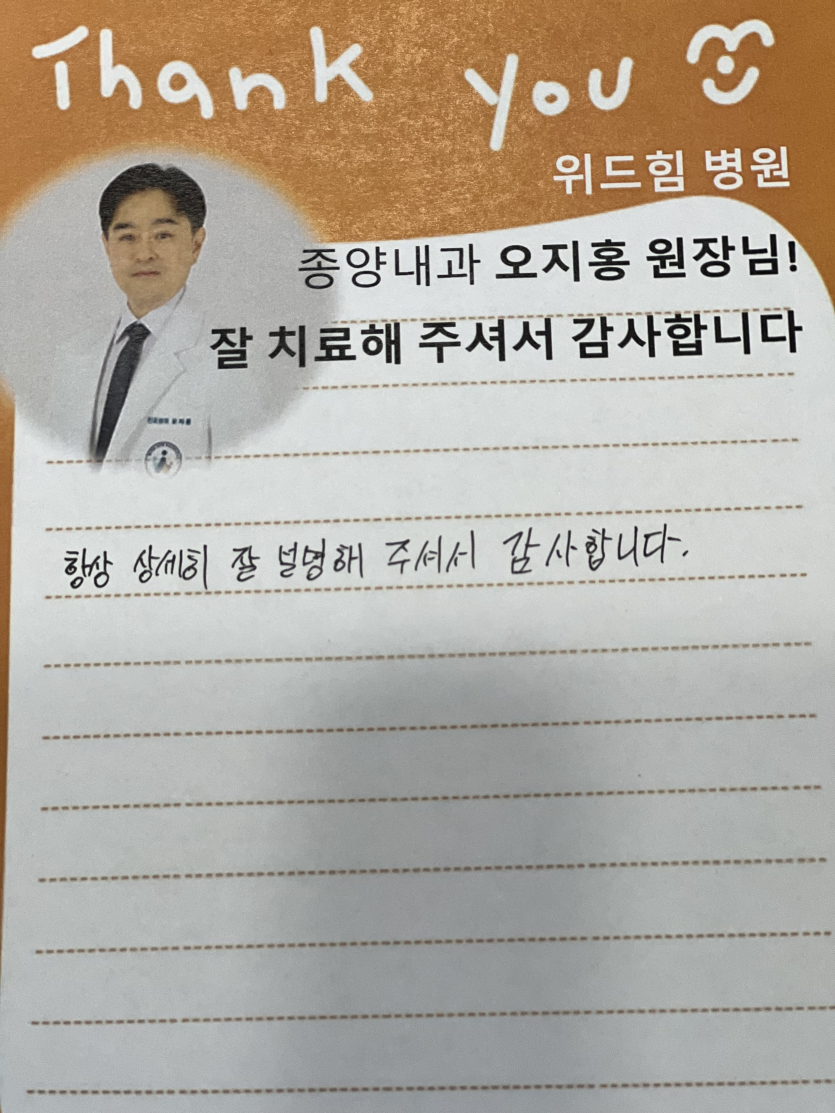 Thank you
위드힘 병원
종양내과 오지홍 원장님!
잘 치료해 주셔서 감사합니다
항상 상세히 잘 설명해 주셔서 감사합니다.